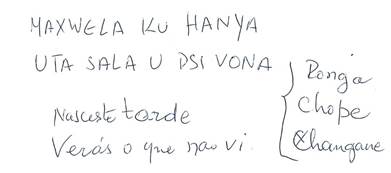 MAXWELA KU HANYA
UTA SALA U DSI VONA
Nasceste tarde
Verás o que nao vi.
Ronga
Chope
Changane